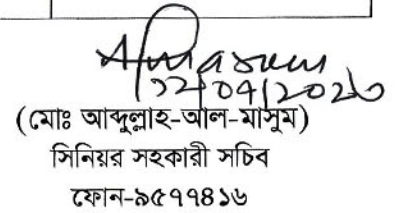 (মোঃ আব্দুল্লাহ-আল-মাসুম)
সিনিয়র সহকারী সচিব
ফোন-৯৫৭৭৪১৬